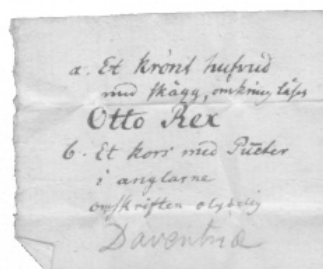 a. Et krönt hufvud
med skägg, omkring läses
Otto Rex
b. Et kors med Puckler
i anglarne
omskriften olyslig
Daventriæ